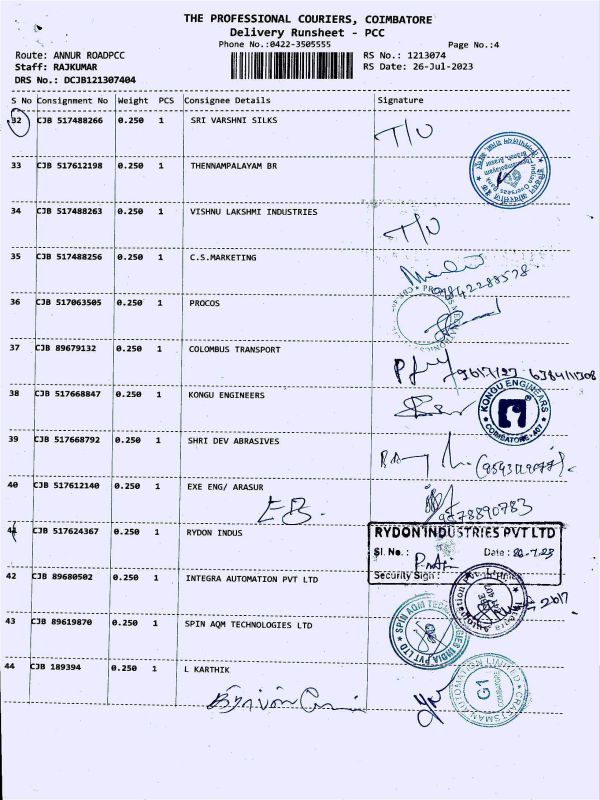 THE PROFESSIONAL COURIERS, COIMBATORE
Delivery Runsheet - PCC
Phone No.:0422-3505555
Page No.:4
Route: ANNUR ROADPCC
RS No.: 1213074
Staff: RAJKUMAR
RS Date: 26-Jul-2023
DRS No.: DCJB121307404
S No Consignment No Weight PCS Consignee Details Signature
32 CJB 517488266 0.250 1 SRI VARSHNI SILKS T/U
33 CJB 517612198 0.250 1 THENNAMPALAYAM BR
34 CJB 517488263 0.250 1 VISHNU LAKSHMI INDUSTRIES T/U
35 CJB 517488256 0.250 1 C.S.MARKETING
9842288578
36 CJB 517063505 0.250 1 PROCOS
37 CJB 89679132 0.250 1 COLOMBUS TRANSPORT
38 CJB 517668847 0.250 1 KONGU ENGINEERS
KONGU ENGINEERS
COIMBATORE - 407
39 CJB 517668792 0.250 1 SHRI DEV ABRASIVES
40 CJB 517612140 0.250 1 EXE ENG/ ARASUR
EB.
9578890783
41 CJB 517624367 0.250 1 RYDON INDUS
RYDON INDUSTRIES PVT LTD
Sl. No. :
Date :
Security Sign :
42 CJB 89680502 0.250 1 INTEGRA AUTOMATION PVT LTD
43 CJB 89619870 0.250 1 SPIN AQM TECHNOLOGIES LTD
SPIN AQM TECHNOLOGIES INDIA PVT LTD
44 CJB 189394 0.250 1 L KARTHIK
CRAFTSMAN AUTOMATION LIMITED
G1
COIMBATORE